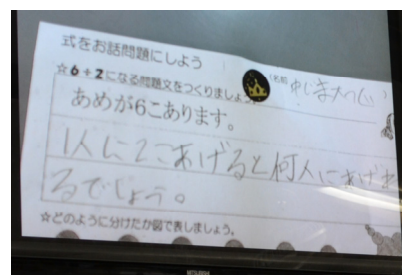 式をお話問題にしよう
(名前
☆6÷2になる問題文をつくりましょう。
あめが6こあります。
1人に2こあげると何人にあげれ
るでしょう。
☆どのように分けたか図で表しましょう。
MITSUBISHI